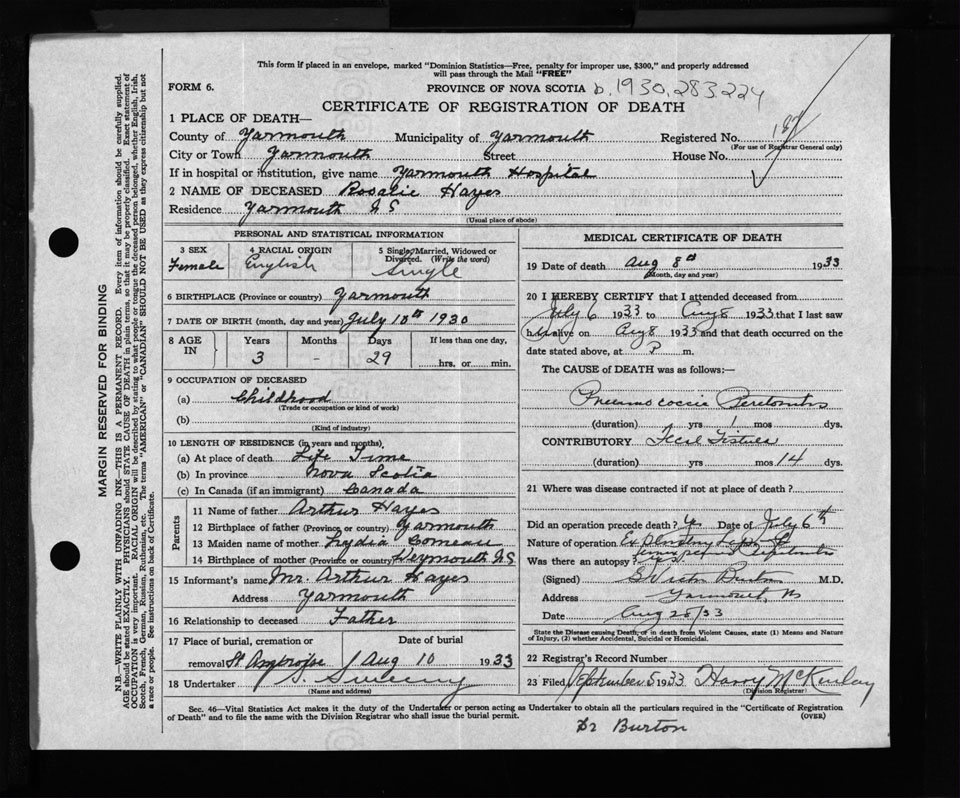 This form if placed in an envelope, marked "Dominion Statistics—Free, penalty for improper use, $300," and properly addressed
will pass through the Mail "FREE"
FORM 6.
PROVINCE OF NOVA SCOTIA b.1930.283.224
CERTIFICATE OF REGISTRATION OF DEATH
1 PLACE OF DEATH—
County of Yarmouth Municipality of Yarmouth Registered No. 187
(For use of Registrar General only)
City or Town Yarmouth Street House No.
If in hospital or institution, give name Yarmouth Hospital
2 NAME OF DECEASED Rosalie Hayes
Residence Yarmouth N S
(Usual place of abode)
PERSONAL AND STATISTICAL INFORMATION
3 SEX Female
4 RACIAL ORIGIN English
5 Single, Married, Widowed or Divorced. (Write the word) Single
6 BIRTHPLACE (Province or country) Yarmouth
7 DATE OF BIRTH (month, day and year) July 10th 1930
8 AGE IN
Years Months Days If less than one day,
3 - 29 hrs. or min.
9 OCCUPATION OF DECEASED
(a) Childhood
(Trade or occupation or kind of work)
(b)
(Kind of industry)
10 LENGTH OF RESIDENCE (in years and months)
(a) At place of death Life Time
(b) In province Nova Scotia
(c) In Canada (if an immigrant) Canada
Parents
11 Name of father Arthur Hayes
12 Birthplace of father (Province or country) Yarmouth
13 Maiden name of mother Lydia Comeau
14 Birthplace of mother (Province or country) Weymouth N S
15 Informant's name Mr. Arthur Hayes
Address Yarmouth
16 Relationship to deceased Father
17 Place of burial, cremation or Date of burial
removal St Ambroise Aug 10 1933
18 Undertaker S. Sweeny
(Name and address)
MEDICAL CERTIFICATE OF DEATH
19 Date of death Aug 8th 1933
(Month, day and year)
20 I HEREBY CERTIFY that I attended deceased from
July 6 1933 to Aug 8 1933 that I last saw
her alive on Aug 8 1933 and that death occurred on
date stated above, at P m.
The CAUSE of DEATH was as follows:—
Pneumococcic Peritonitis
(duration) yrs 1 mos dys.
CONTRIBUTORY Fecal Fistula
(duration) yrs mos 14 dys.
21 Where was disease contracted if not at place of death?
Did an operation precede death? Yes Date of July 6th
Nature of operation Exploratory
Was there an autopsy?
(Signed) Burton M.D.
Address Yarmouth, NS
Date Aug 28/33
State the Disease causing Death, or in death from Violent Causes, state (1) Means and Nature
of Injury, (2) whether Accidental, Suicidal or Homicidal.
22 Registrar's Record Number
23 Filed September 5 1933 Harry McKinlay
(Division Registrar)
Sec. 46—Vital Statistics Act makes it the duty of the Undertaker or person acting as Undertaker to obtain all the particulars required in the "Certificate of Registration
of Death" and to file the same with the Division Registrar who shall issue the burial permit. (OVER)
Dr Burton
MARGIN RESERVED FOR BINDING
N.B.—WRITE PLAINLY WITH UNFADING INK—THIS IS A PERMANENT RECORD. Every item of information should be carefully supplied.
AGE should be stated EXACTLY. PHYSICIANS should STATE CAUSE OF DEATH in plain terms, so that it may be properly classified. Exact statement of
OCCUPATION is very important. RACIAL ORIGIN will be described by stating to what people or tongue the deceased person belonged, whether English, Irish,
Scotch, French, German, Russian, Ruthenian, etc. The terms "AMERICAN" or "CANADIAN" SHOULD NOT BE USED as they express citizenship but not
a race or people. See instructions on back of Certificate.